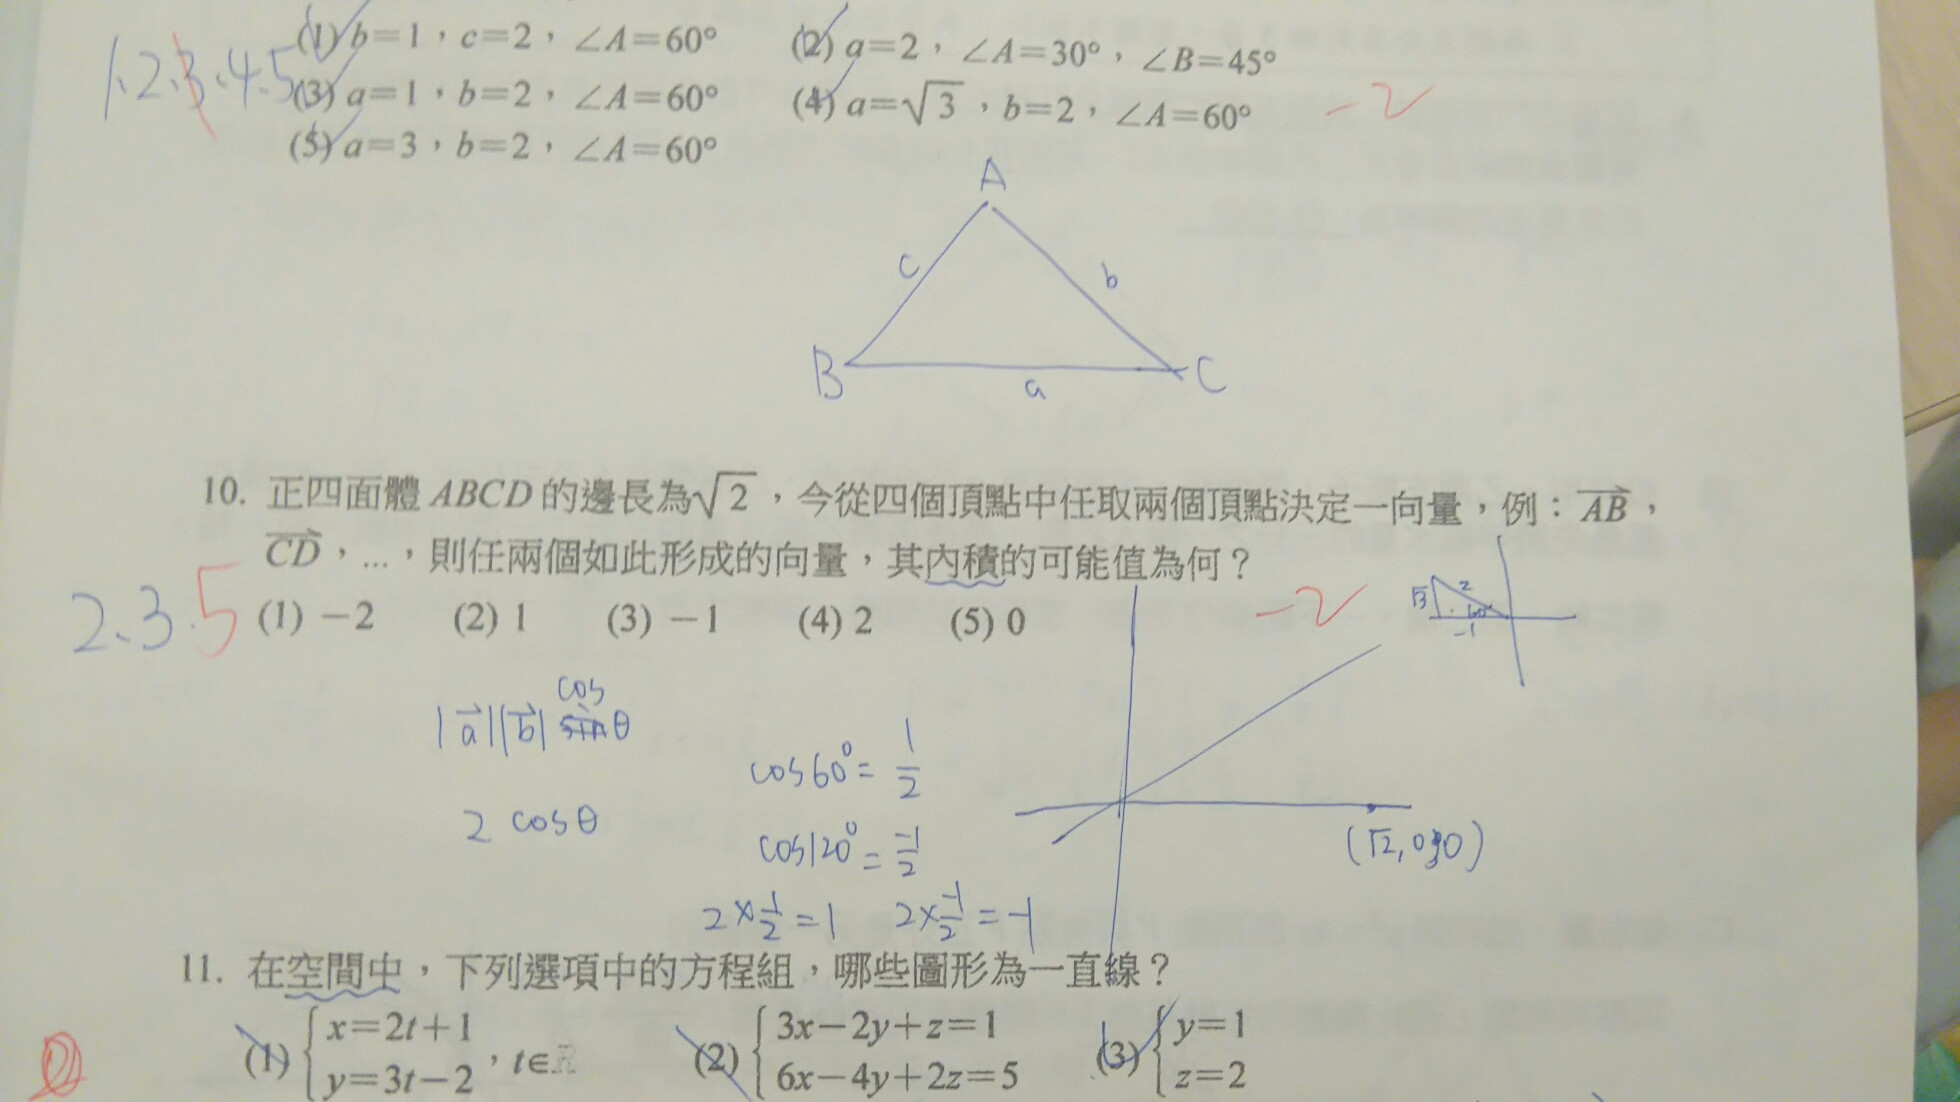 (1) b=1，c=2，∠A=60° (2) a=2，∠A=30°，∠B=45°
1.2.3.4.5
(3) a=1，b=2，∠A=60° (4) a=√3，b=2，∠A=60° -2
(5) a=3，b=2，∠A=60°
A
c b
B a C
10. 正四面體 ABCD 的邊長為√2，今從四個頂點中任取兩個頂點決定一向量，例：AB⃗，
CD⃗，…，則任兩個如此形成的向量，其內積的可能值為何？
2、3.5 (1) −2 (2) 1 (3) −1 (4) 2 (5) 0 -2
√3 2 60° -1
|a⃗||b⃗| sinθ
cos
cos60°= 1/2
2 cosθ
cos120°= -1/2
(√2,0,0)
2×1/2=1 2×-1/2=-1
11. 在空間中，下列選項中的方程組，哪些圖形為一直線？
(1) {x=2t+1 (2) {3x−2y+z=1 (3) {y=1
y=3t−2，t∈R 6x−4y+2z=5 z=2